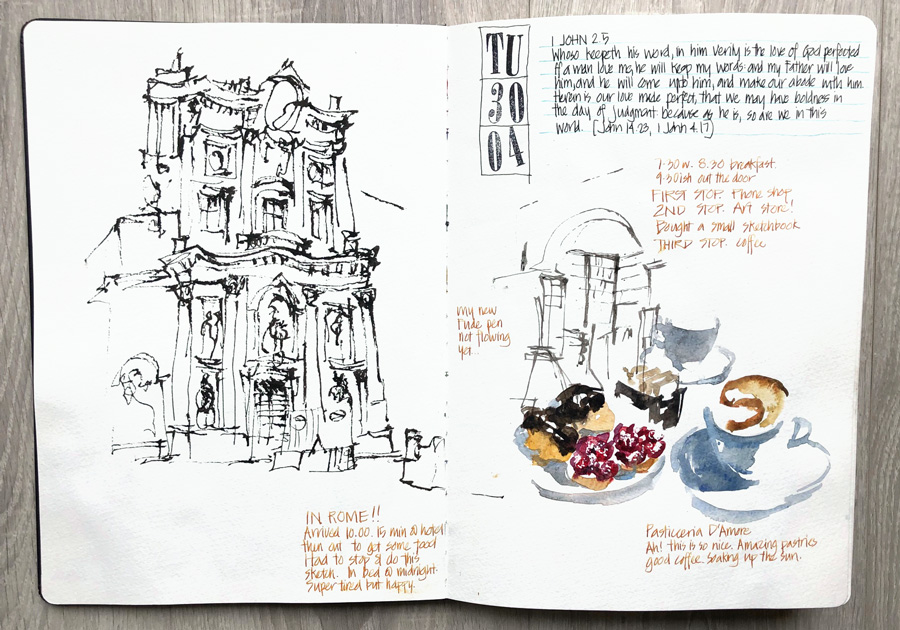 IN ROME!!
Arrived 10.00. 15 min @ hotel
then out to get some food
Had to stop & do this
sketch. In bed @ midnight.
Super tired but happy.
TU
30
04
1 JOHN 2.5
Whoso keepeth his word, in him verily is the love of God perfected
If a man love me, he will keep my words: and my Father will love
him, and he will come unto him, and make our abode with him.
Herein is our love made perfect, that we may have boldness in
the day of judgment because as he is, so are we in this
world. [John 14.23, 1 John 4.17]
7.30 w. 8.30 breakfast.
9.30ish out the door
FIRST STOP. Phone shop
2ND STOP. Art store!
Bought a small sketchbook
THIRD STOP. coffee
my new
Fude pen
not flowing
yet...
Pasticceria D'Amore
Ah! this is so nice. Amazing pastries
good coffee. soaking up the sun.